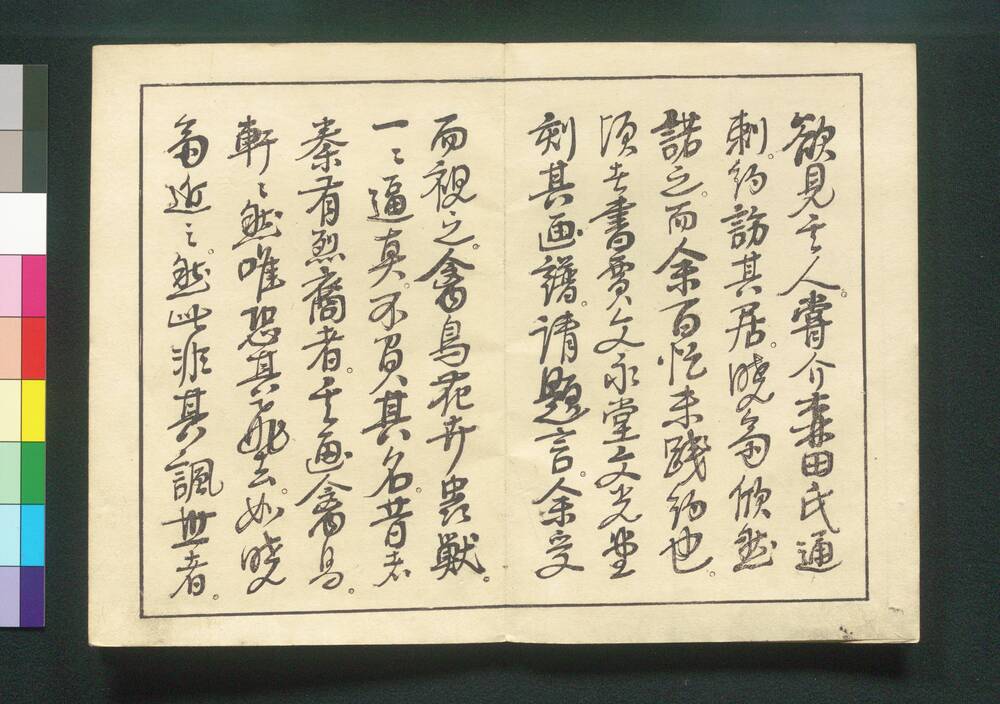 欲見其人。嘗介森田氏通
刺。約訪其居。暁斎欣然
諾之。而余百忙未践約也。
頃者書賈文永堂文光堂
刻其画譜。請題言。余受
而視之。禽鳥花卉虫獣。
一〻逼真。不負其名。昔者
秦有烈裔者。其画禽鳥。
軒〻然唯恐其飛去。如暁
斎近之。然此非其諷世者。